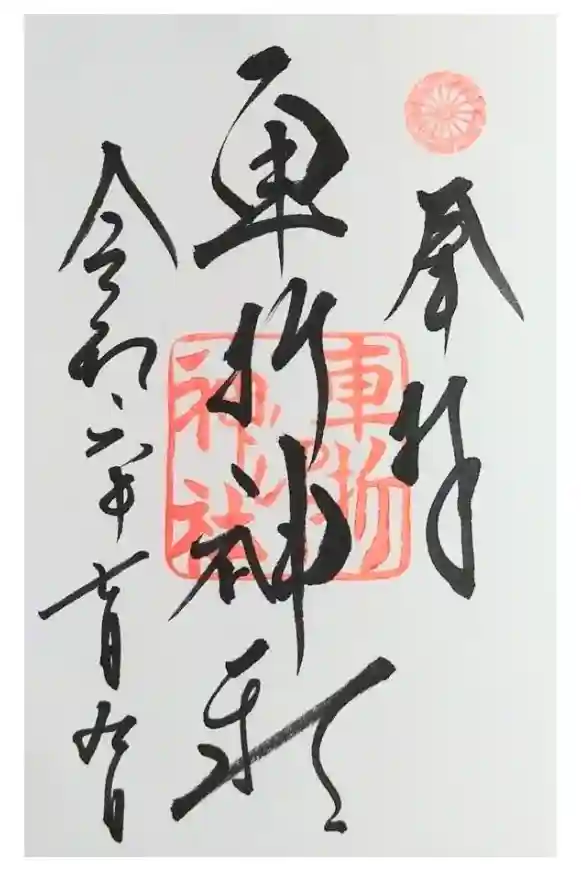 奉拝
車折神社
車折神社
令和六年七月九日